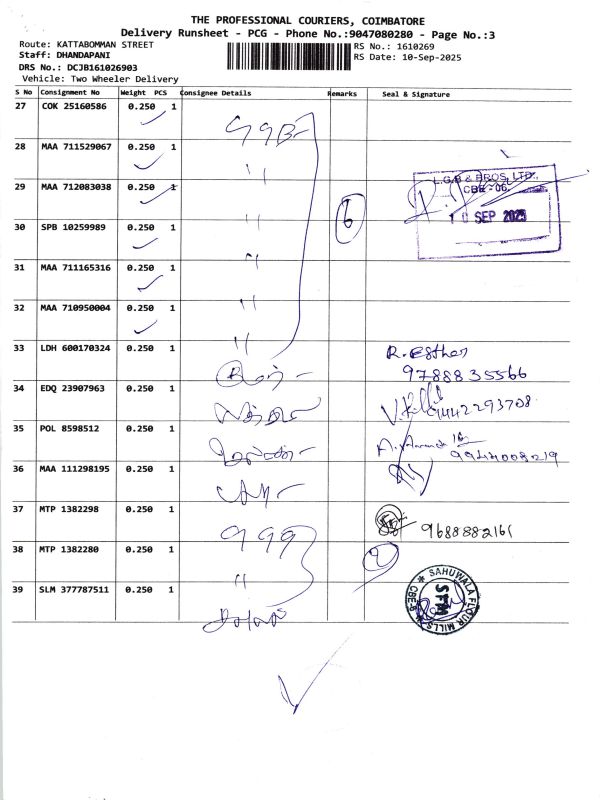 THE PROFESSIONAL COURIERS, COIMBATORE
Delivery Runsheet - PCG - Phone No.:9047080280 - Page No.:3
Route: KATTABOMMAN STREET
RS No.: 1610269
Staff: DHANDAPANI
RS Date: 10-Sep-2025
DRS No.: DCJB161026903
Vehicle: Two Wheeler Delivery
S No Consignment No Weight PCS Consignee Details Remarks Seal & Signature
27 COK 25160586 0.250 1
28 MAA 711529067 0.250 1 "
L.G.B & BROS. LTD.,
CBE - 06.
29 MAA 712083038 0.250 1 "
10 SEP 2025
30 SPB 10259989 0.250 1 " 6
31 MAA 711165316 0.250 1 "
32 MAA 710950004 0.250 1 "
33 LDH 600170324 0.250 1 R. Esther
9788835566
34 EDQ 23907963 0.250 1 9442293708
35 POL 8598512 0.250 1 9944008219
36 MAA 111298195 0.250 1
37 MTP 1382298 0.250 1 9688882161
38 MTP 1382280 0.250 1 " 2
39 SLM 377787511 0.250 1
SAHUWALA FLOUR MILLS
CBE-6
SFM